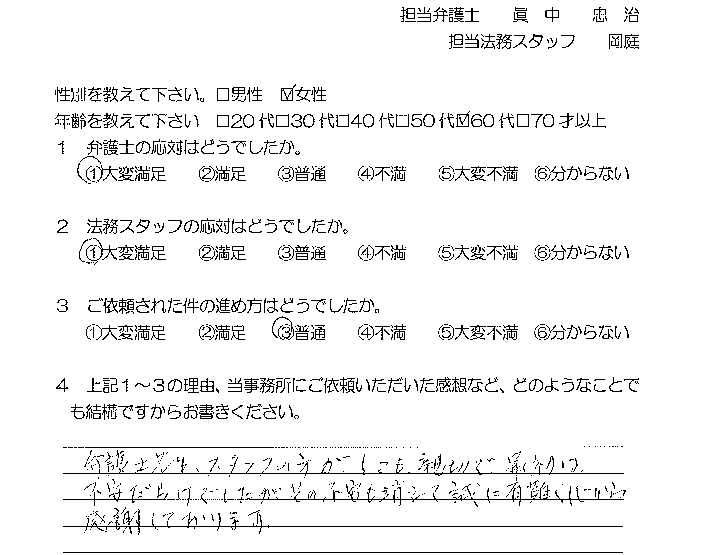 担当弁護士　眞　中　　忠　治
担当法務スタッフ　　岡庭
性別を教えて下さい。□男性　☑女性
年齢を教えて下さい　□20代□30代□40代□50代☑60代□70才以上
１　弁護士の応対はどうでしたか。
①大変満足　②満足　③普通　④不満　⑤大変不満　⑥分からない
２　法務スタッフの応対はどうでしたか。
①大変満足　②満足　③普通　④不満　⑤大変不満　⑥分からない
３　ご依頼された件の進め方はどうでしたか。
①大変満足　②満足　③普通　④不満　⑤大変不満　⑥分からない
４　上記１～３の理由、当事務所にご依頼いただいた感想など、どのようなことで
も結構ですからお書きください。
弁護士先生、スタッフの方がとても親切で最初は
不安だらけでしたがその不安も消えて誠に有難く
感謝しております。